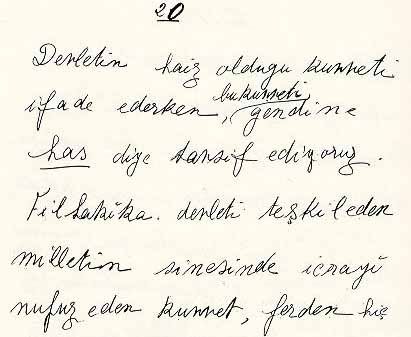 20
Devletin haiz olduğu kuvveti
ifade ederken, bu kuvveti, gendine
has diye tavsif ediyoruz.
Filhakika. devleti teşkil eden
milletin sinesinde icrayi
nufuz eden kuvvet, ferden hiç